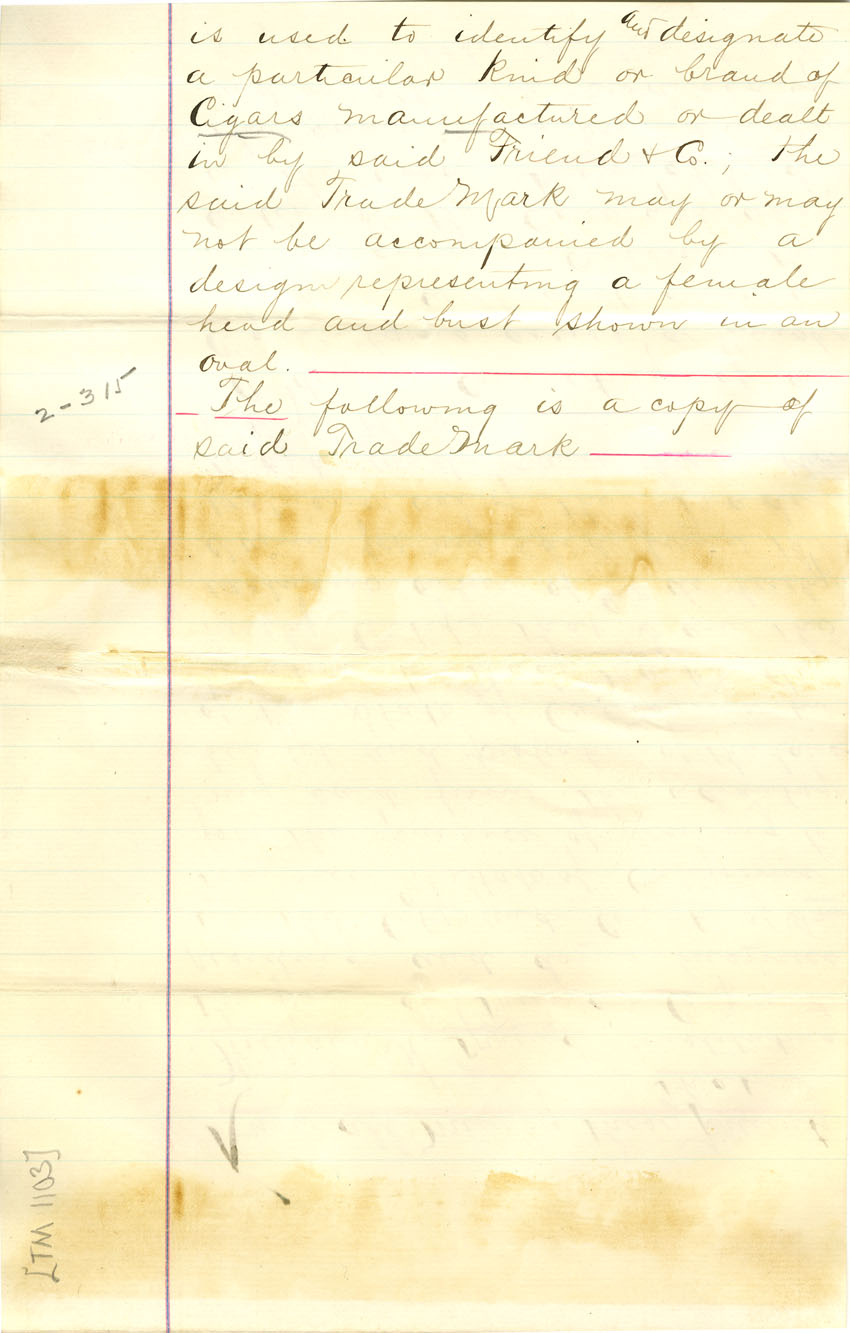 is used to identify and designate
a particular kind or brand of
Cigars manufactured or dealt
in by said Friend & Co.; the
said Trade Mark may or may
not be accompanied by a
design representing a female
head and bust shown in an
oval.
2-315
The following is a copy of
said Trade Mark
[TM 1103]